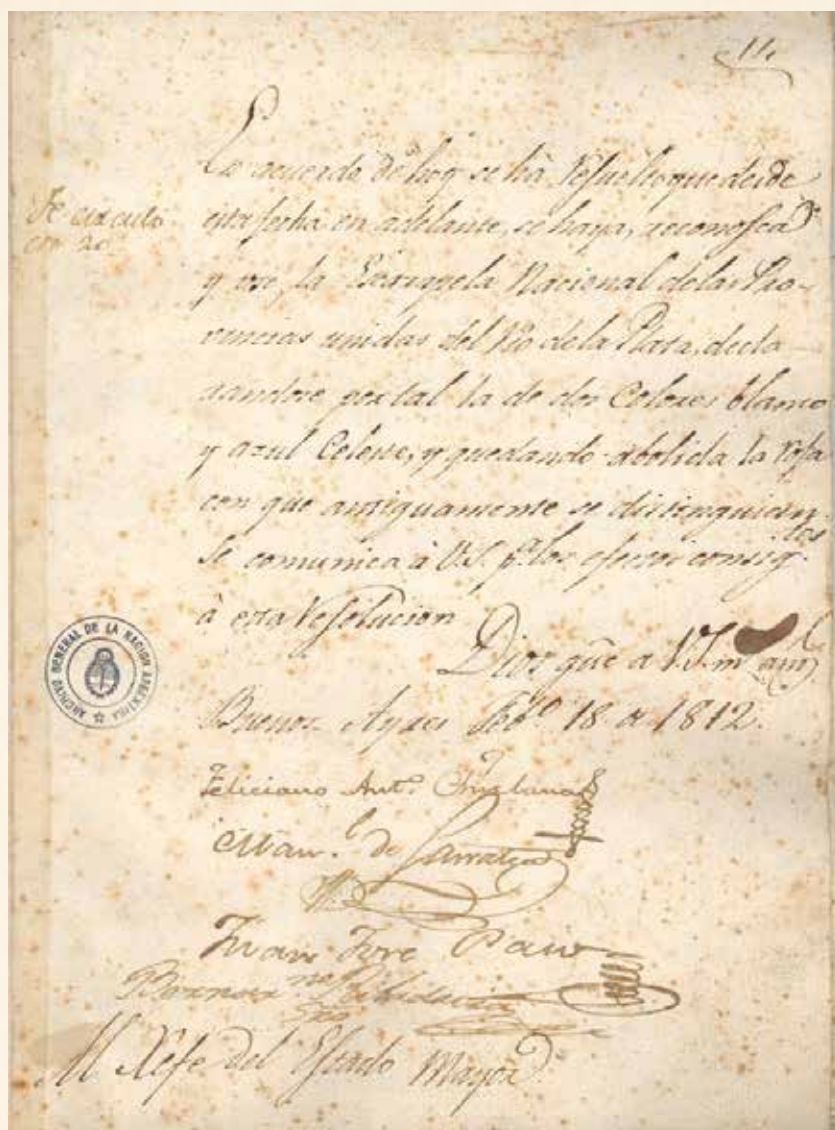 11.
En acuerdo de hoy se há resuelto que desde
esta fecha en adelante, se haya, reconosca
y use, la Escarapela Nacional de las Pro-
vincias unidas del Rio de la Plata, decla-
randose por tal la de dos Colores blanco
y azul Celeste, y quedando abolida la roja
con que antiguamente se distinguian
Se comunica á V.S. pª. los efectos consig.tes
á esta resolucion
Dios gûe a V.S. m.s an.s
Buenos Ayres Febº. 18 de 1812.
Se circuló
con 20
Feliciano Antº. Chiclana
Man.l de Sarratea
Juan José Paso
Bernar.no Rivadavia
Srio
Al Xefe del Estado Mayor
ARCHIVO GENERAL DE LA NACION ARGENTINA